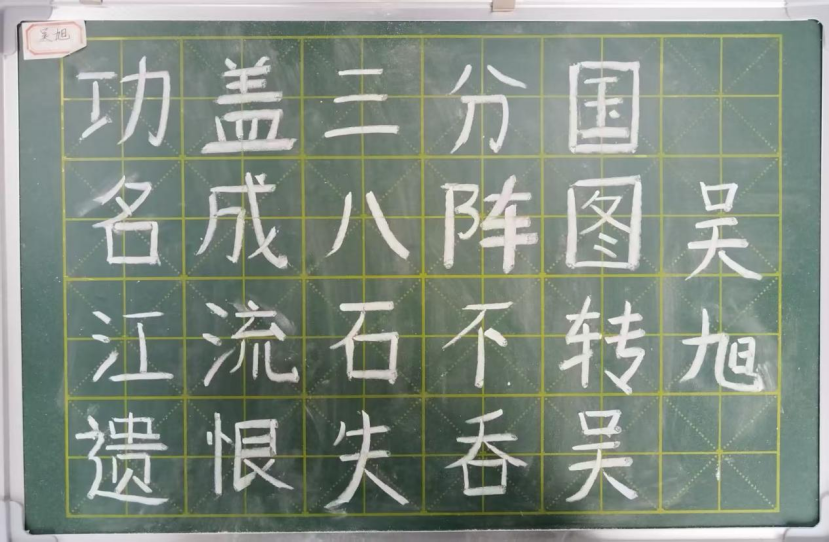 吴旭
功盖三分国
名成八阵图
江流石不转
遗恨失吞吴
吴旭